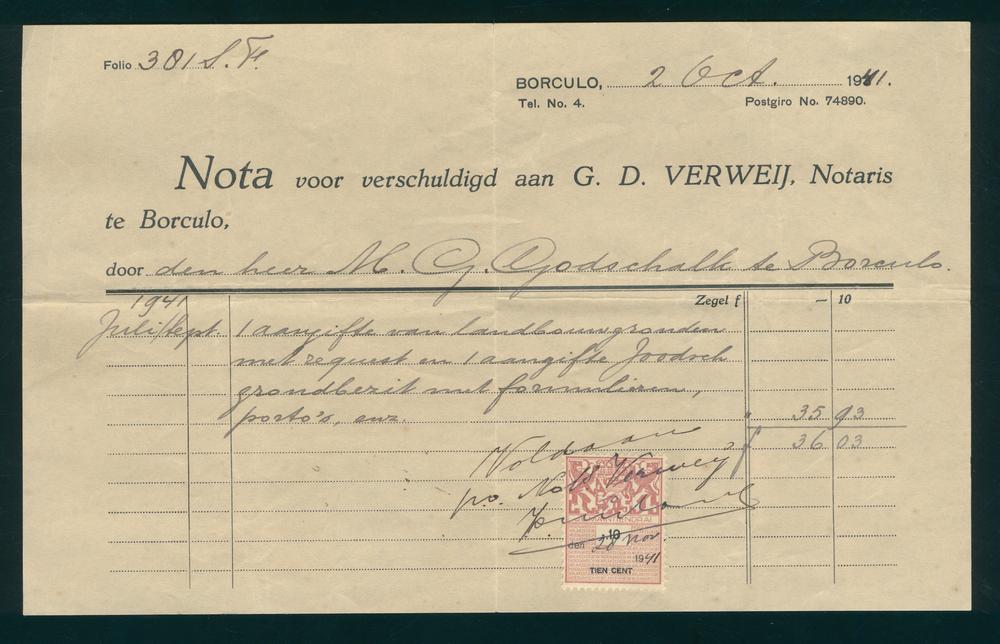 Folio 301 S. F.
BORCULO, 2 Oct. 1941.
Tel. No. 4. Postgiro No. 74890.
Nota voor verschuldigd aan G. D. VERWEIJ, Notaris
te Borculo,
door den heer M. G. Godschalk te Borculo.
1941 Zegel f — 10
Juli/Sept. 1 aangifte van landbouwgronden
met request en 1 aangifte Joodsch
grondbezit met formulieren,
porto's, enz. " 35 93
f 36 03
Voldaan
p.o. Not. Verweij
10
den 28 Nov.
1941
TIEN CENT